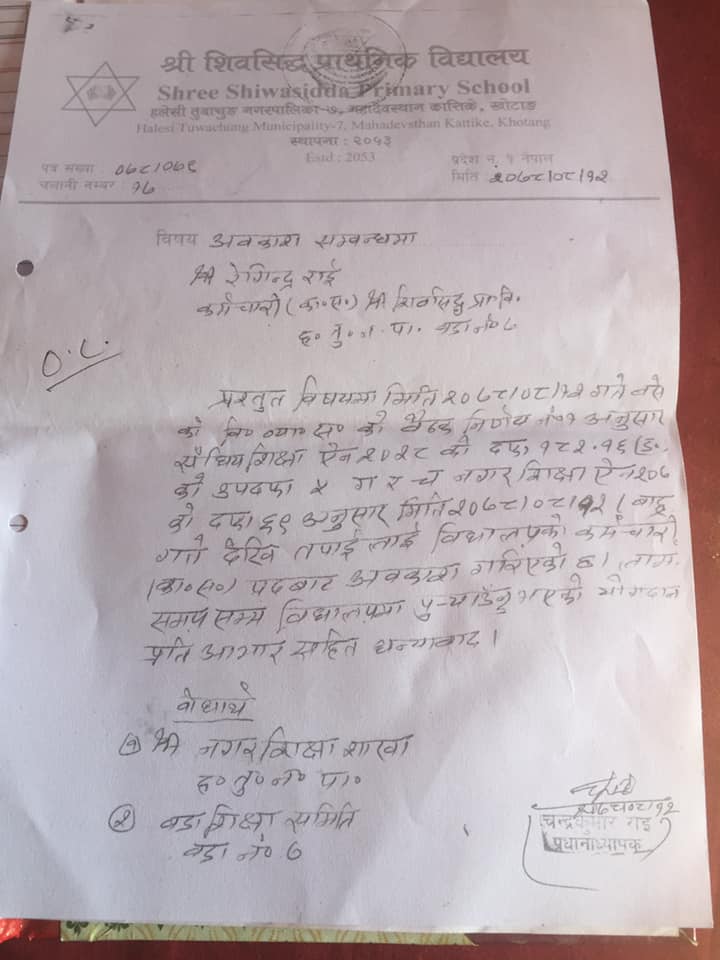 श्री शिवसिद्ध प्राथमिक विद्यालय
Shree Shiwasidda Primary School
हलेसी तुवाचुङ नगरपालिका-७, महादेवस्थान कात्तिके, खोटाङ
Halesi Tuwachung Municipality-7, Mahadevsthan Kattike, Khotang
स्थापना : २०५३
Estd : 2053
पत्र संख्या : ०७८/०७९
प्रदेश नं. १ नेपाल
चलानी नम्बर : १७
मिति : २०७८/०८/१२
विषय अवकाश सम्वन्धमा
श्री रेगिन्द्र राई
कर्मचारी (का॰स॰) श्री शिवसिद्ध प्रा.वि.
ह॰ तु॰ न. पा. वडा नं॰ ७
O.C.
प्रस्तुत विषयमा मिति २०७८/०८/१२ गते बसे
को वि॰ व्य॰ स॰ को बैठक निर्णय नं॰ १ अनुसार
संघिय शिक्षा ऐन २०२८ को दफा १८२.१६
को उपदफा ५ ग र च नगर शिक्षा ऐन २०७
को दफा ६९ अनुसार मिति २०७८/०८/१२ ( बाह्र
गते देखि तपाई लाई विद्यालयको कर्मचारी
(का॰स॰) पदबाट अवकाश गरिएको छ। लामो
समय सम्म विद्यालयमा पु-याउनु भएको योगदान
प्रति आभार सहित धन्यवाद।
वोधार्थ
१ श्री नगर शिक्षा शाखा
ह॰ तु॰ न॰ पा॰
२ वडा शिक्षा समिति
वडा नं॰ ७
२०७८०८/१२
चन्द्रकुमार राई
प्रधानाध्यापक